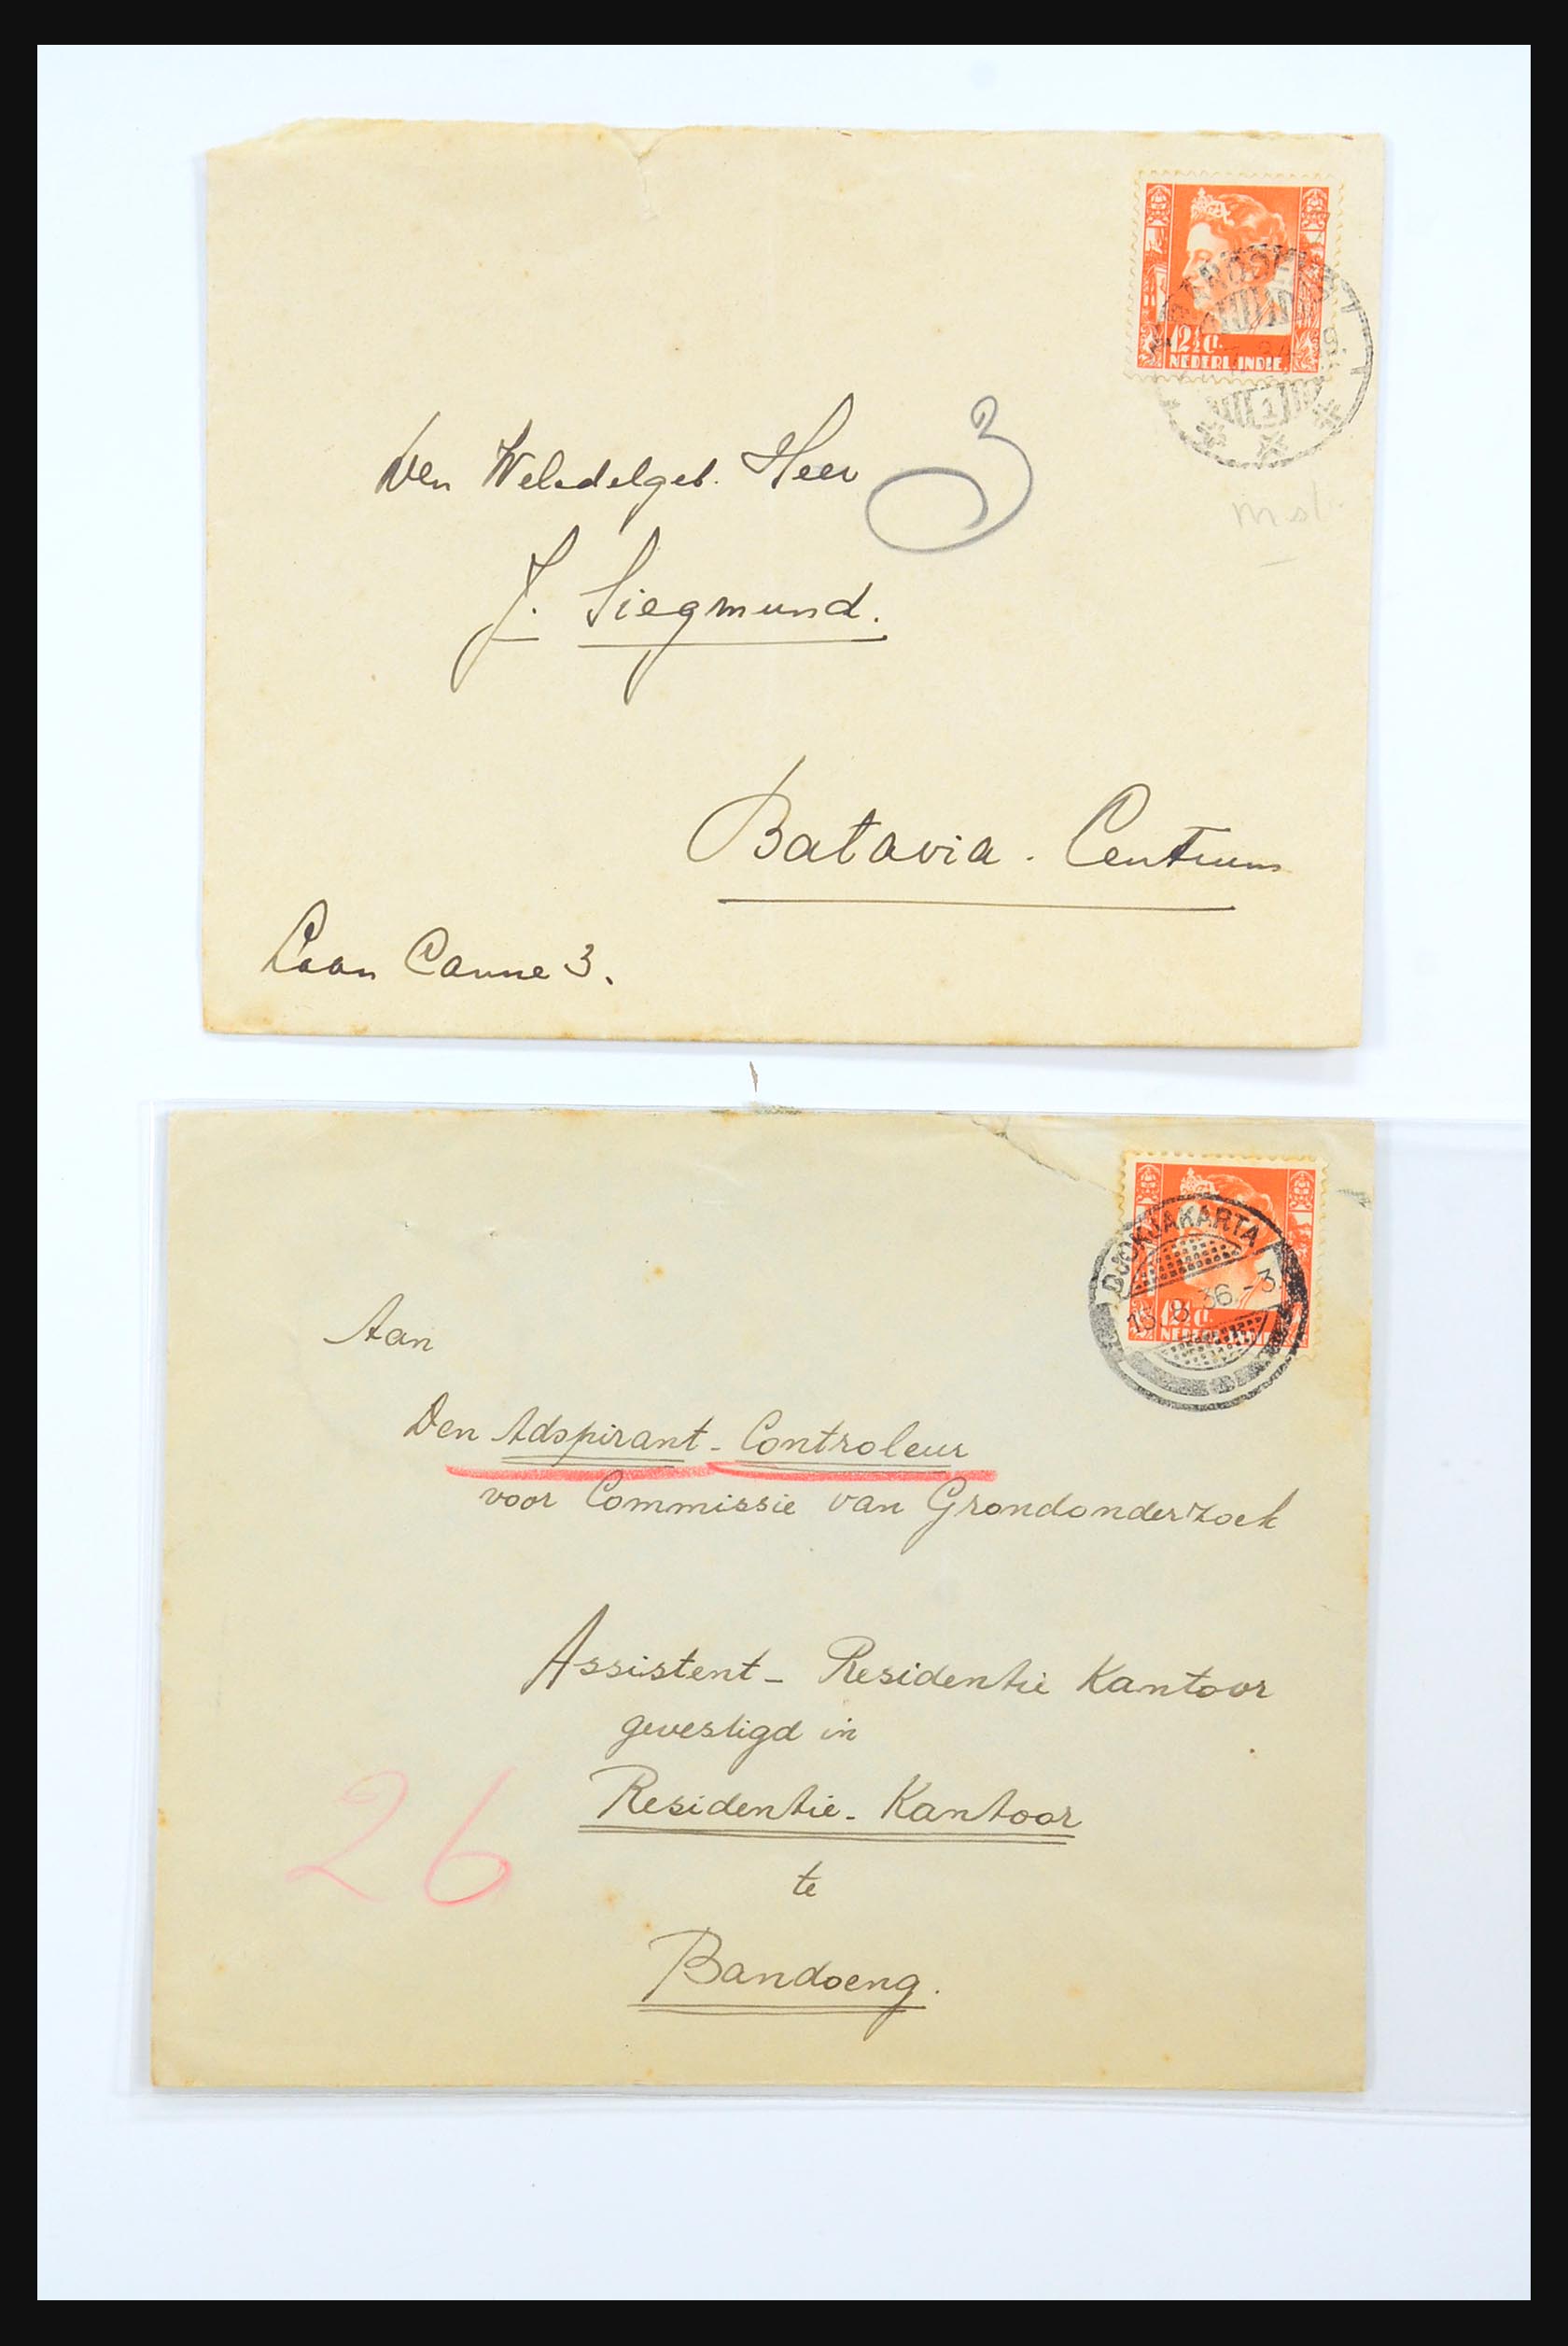 12½ Ct.
NEDERL. INDIE
1
3
Den Weledelgeb. Heer
J. Siegmund.
Batavia. Centrum
Laan Canne 3.
DJOKJAKARTA
13.8.36.-3
12½ Ct.
Aan
Den Adspirant-Controleur
voor Commissie van Grondonderzoek
Assistent- Residentie Kantoor
gevestigd in
Residentie- Kantoor
te
26
Bandoeng.